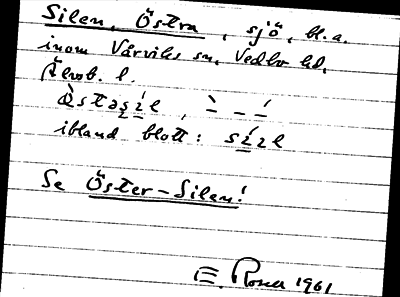 Silen, Östra, sjö, bl.a.
inom Vårviks sn, Vedbo hd,
Älvsb. l.
ibland blott:
Se Öster-Silen!
E. Rosell 1961